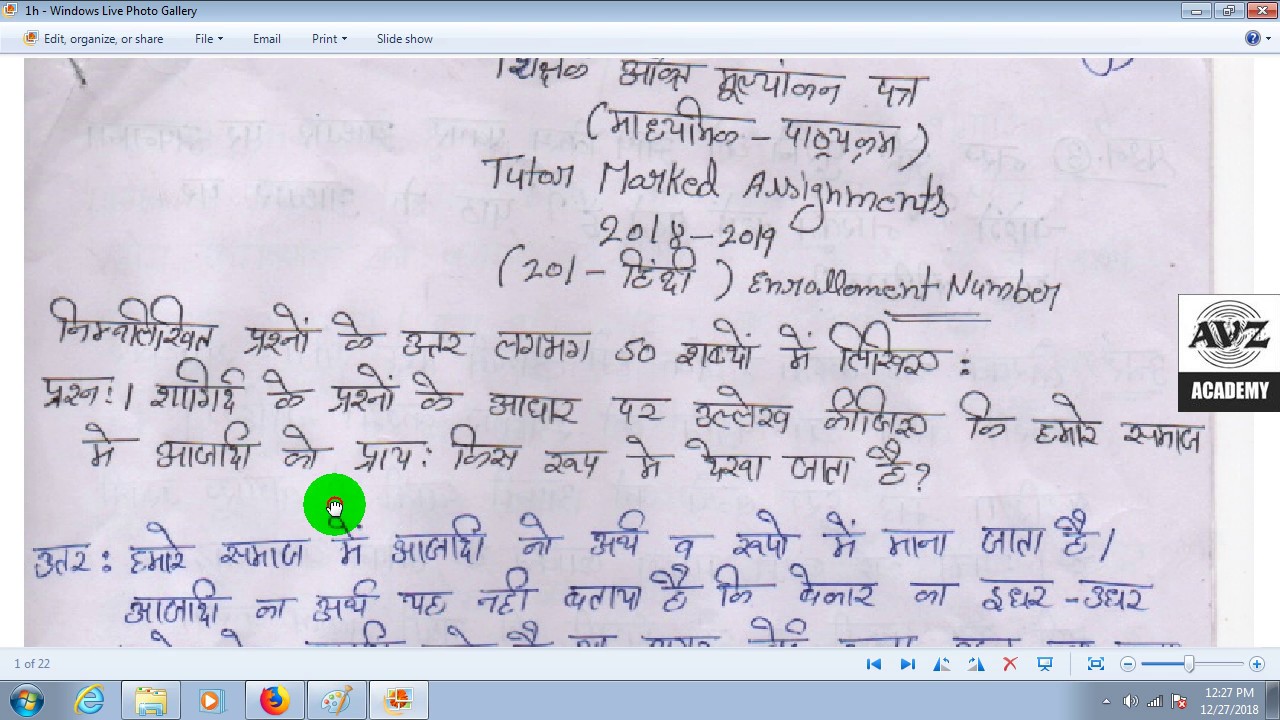 1h - Windows Live Photo Gallery
Edit, organize, or share File Email Print Slide show
शिक्षक अंकित मूल्यांकन पत्र
(माध्यमिक - पाठ्यक्रम)
Tutor Marked Assignments
2018-2019
(201 - हिंदी) Enrallement Number
निम्नलिखित प्रश्नों के उत्तर लगभग 50 शब्दों में लिखिए :
प्रश्न:1 शागिर्द के प्रश्नों के आधार पर उल्लेख कीजिए कि हमारे समाज
मे आजादी को प्राय: किस रूप मे देखा जाता है?
उत्तर: हमारे समाज में आजादी को अर्थ व रूपो में माना जाता है।
आजादी का अर्थ यह नही बताया है कि बेकार का इधर-उधर
AVZ
ACADEMY
1 of 22
12:27 PM
12/27/2018